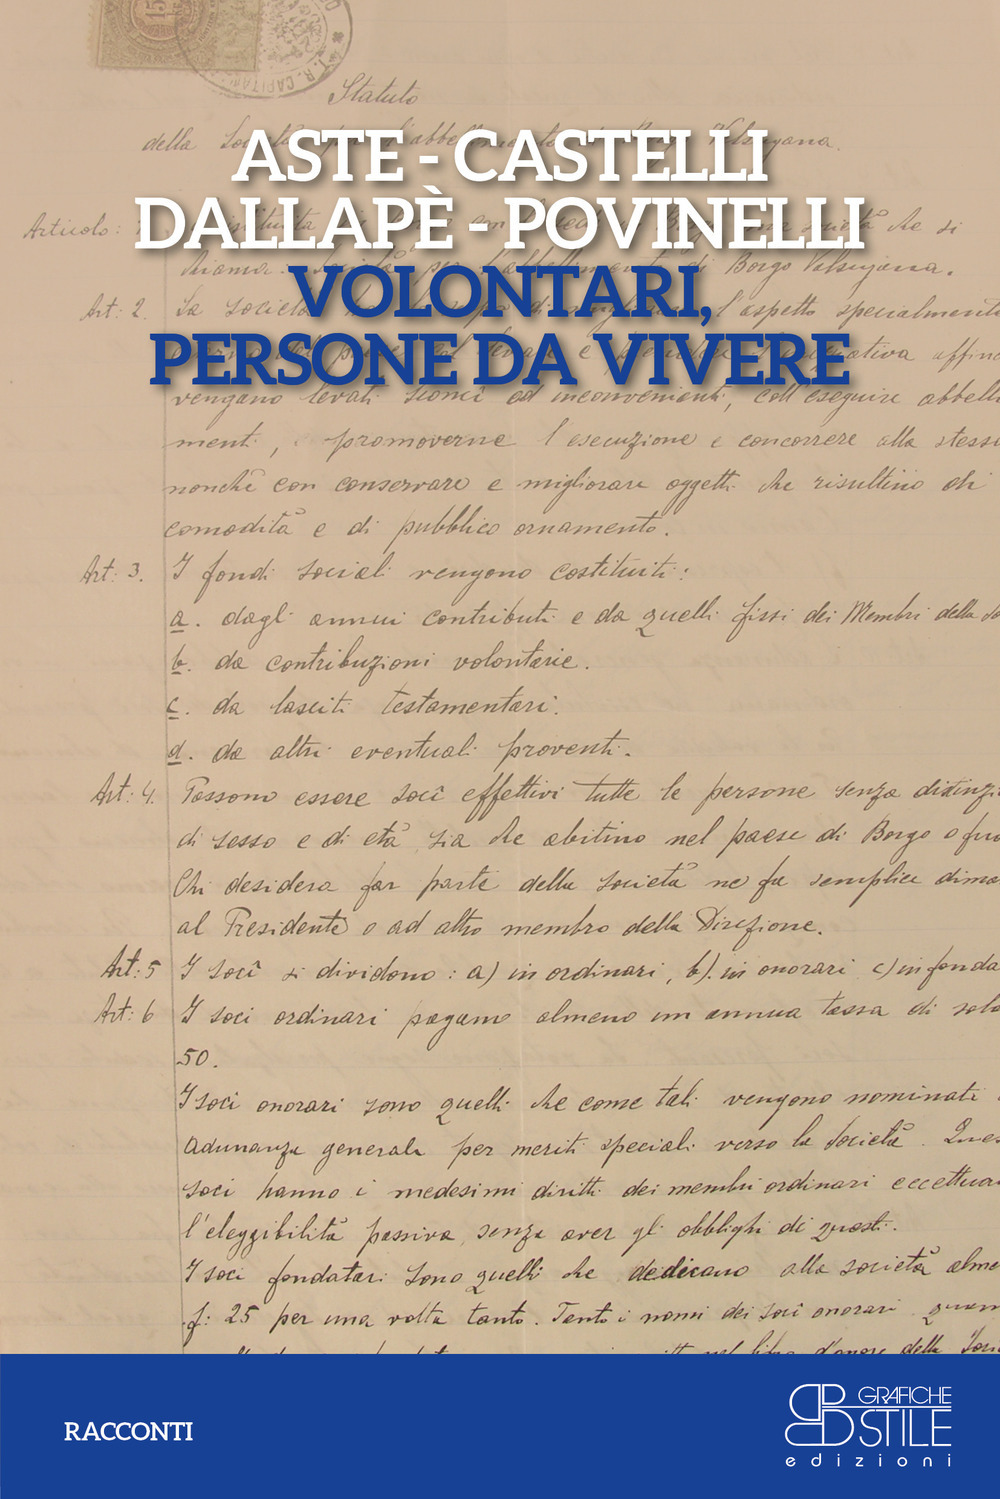 15
I. R. CAPITAN
Statuto
della Società per l'abbe Borgo Valsugana.
ASTE - CASTELLI
DALLAPÈ - POVINELLI
VOLONTARI,
PERSONE DA VIVERE
Articolo: 1. società che si
chiama Società per l'abbellimento di Borgo Valsugana.
Art: 2. La società l'aspetto specialmente
affinc
vengano levati sconci ed inconvenienti, coll'eseguire abbelli
menti, promoverne l'esecuzione e concorrere alla stessa
nonchè con conservare e migliorare oggetti che risultino di
comodità e di pubblico ornamento.
Art: 3. I fondi sociali vengono costituiti:
a. dagli annui contributi e da quelli fissi dei Membri della So
b. da contribuzioni volontarie.
c. da lasciti testamentari.
d. da altri eventuali proventi.
Art: 4. Possono essere soci effettivi tutte le persone senza distinzi
di sesso e di età sia che abitino nel paese di Borgo o fuo
Chi desidera far parte della società ne fa semplice diman
al Presidente o ad altro membro della Direzione.
Art: 5 I soci si dividono: a) in ordinari, b). in onorari c) in fonda
Art: 6 I soci ordinari pagano almeno un annua tassa di sol
50.
I soci onorari sono quelli che come tali vengono nominati
Adunanza generale per meriti speciali verso la Società. Ques
soci hanno i medesimi diritti dei membri ordinari eccettua
l'eleggibilità passiva, senza aver gli obblighi di questi.
I soci fondatari sono quelli che dedicano alla società alme
f: 25 per una volta tanto. Tanto i nomi dei soci onorari quan
nel libro d'onore della Soci
RACCONTI
GRAFICHE
STILE
edizioni